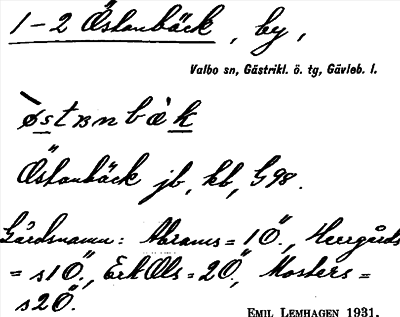 1-2 Östanbäck, by,
Valbo sn, Gästrikl. ö. tg, Gävleb. l.
Östanbäck jb, kb, G98.
Gårdsnamn: Abrams = 1Ö., Herrgårds
= s1Ö., Erk Ols = 2Ö., Mosters =
s2Ö.
EMIL LEMHAGEN 1931.